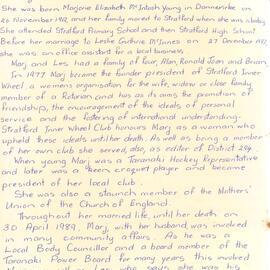 She was born Marjorie Elizabeth McIntosh Young in Dannevirke on
26 November 1912, and her family moved to Stratford when she was a baby.
She attended Stratford Primary School and then Stratford High School.
Before her marriage to Leslie Guthrie McInnes on 27 December 1937
she was an office assistant for a local business.
Marj and Les had a family of four, Alan, Ronald, Joan and Brian.
In 1977 Marj became the founder president of Stratford Inner
Wheel, a womens organisation for the wife, widow or close family
member of a Rotarian and has as its aims the promotion of
friendship, the encouragement of the ideals of personal
service and the fostering of international understanding.
Stratford Inner Wheel Club honours Marj as a woman who
upheld these ideals until her death. As well as being a member
of her own club she served, also, as editor of District 294.
When young Marj was a Taranaki Hockey Representative
and later was a keen croquet player and became
president of her local club.
She was also a staunch member of the Mothers'
Union of the Church of England.
Throughout her married life, until her death on
30 April 1989, Marj, with her husband, was involved
in many community affairs. As he was a
Local Body Councillor and a board member of the
Taranaki Power Board for many years this involved
who says she was his